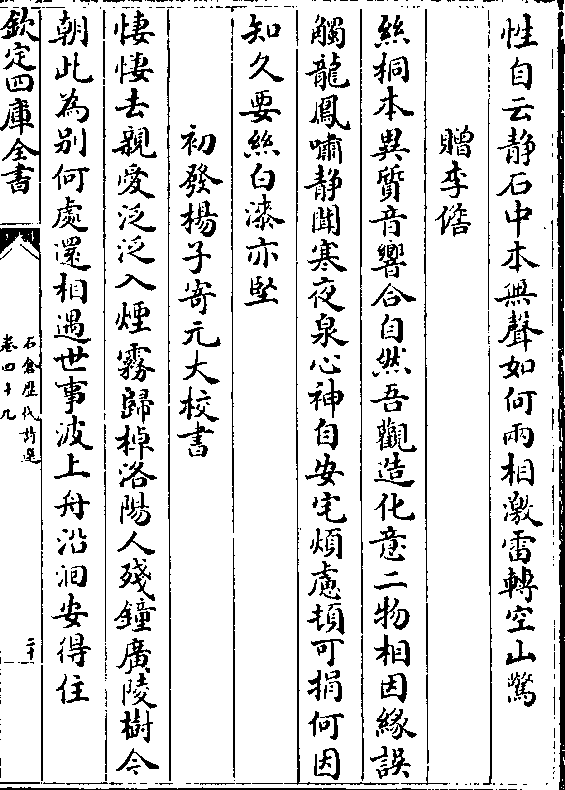 性自云静石中本無聲如何兩相激雷轉空山驚
贈李儋
絲桐本異質音響合自然吾觀造化意二物相因緣誤
觸龍鳳嘯静聞寒夜泉心神自安宅煩慮頓可捐何因
知久要絲白漆亦堅
初發楊子寄元大校書
悽悽去親愛泛泛入煙霧歸棹洛陽人殘鐘廣陵樹今
朝此為别何處還相遇世事波上舟沿洄安得住
欽定四庫全書
石倉歷代詩選
卷四十九
二十